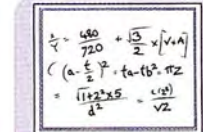 x/y = 480/720 + √3/2 × [V+A]
((a-t/2)² = ta-tb² = πz
= √1+2³×5/d² = c(2³)/√2